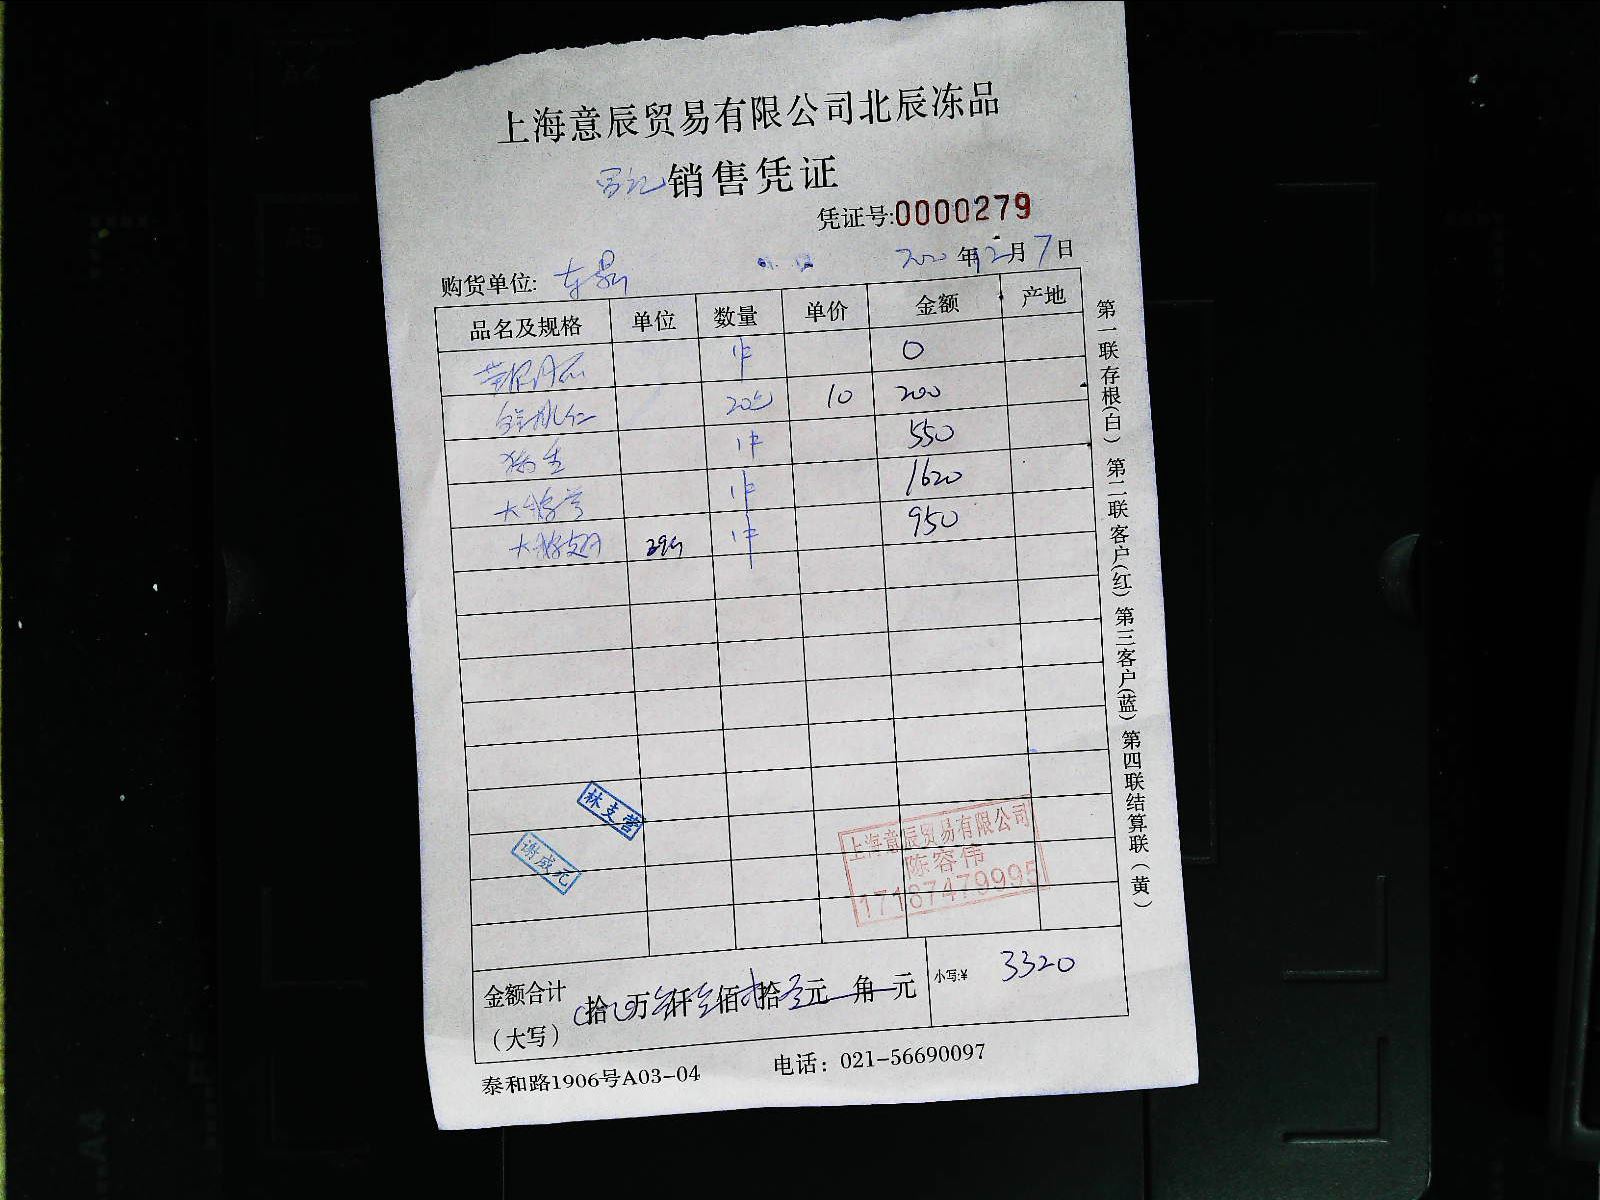 上海意辰贸易有限公司北辰冻品
销售凭证
凭证号:0000279
购货单位: 2020年12月7日
品名及规格 单位 数量 单价 金额 产地
1件 0
20包 10 200
1件 550
大 1件 1620
大 翅 1件 950
林支营
谢成元
上海意辰贸易有限公司
陈容伟
17187479995
金额合计 拾 万 仟 佰 拾 元 角 元 小写:¥ 3320
(大写)
泰和路1906号A03-04 电话：021-56690097
第一联存根(白) 第二联客户(红) 第三客户(蓝) 第四联结算联(黄)